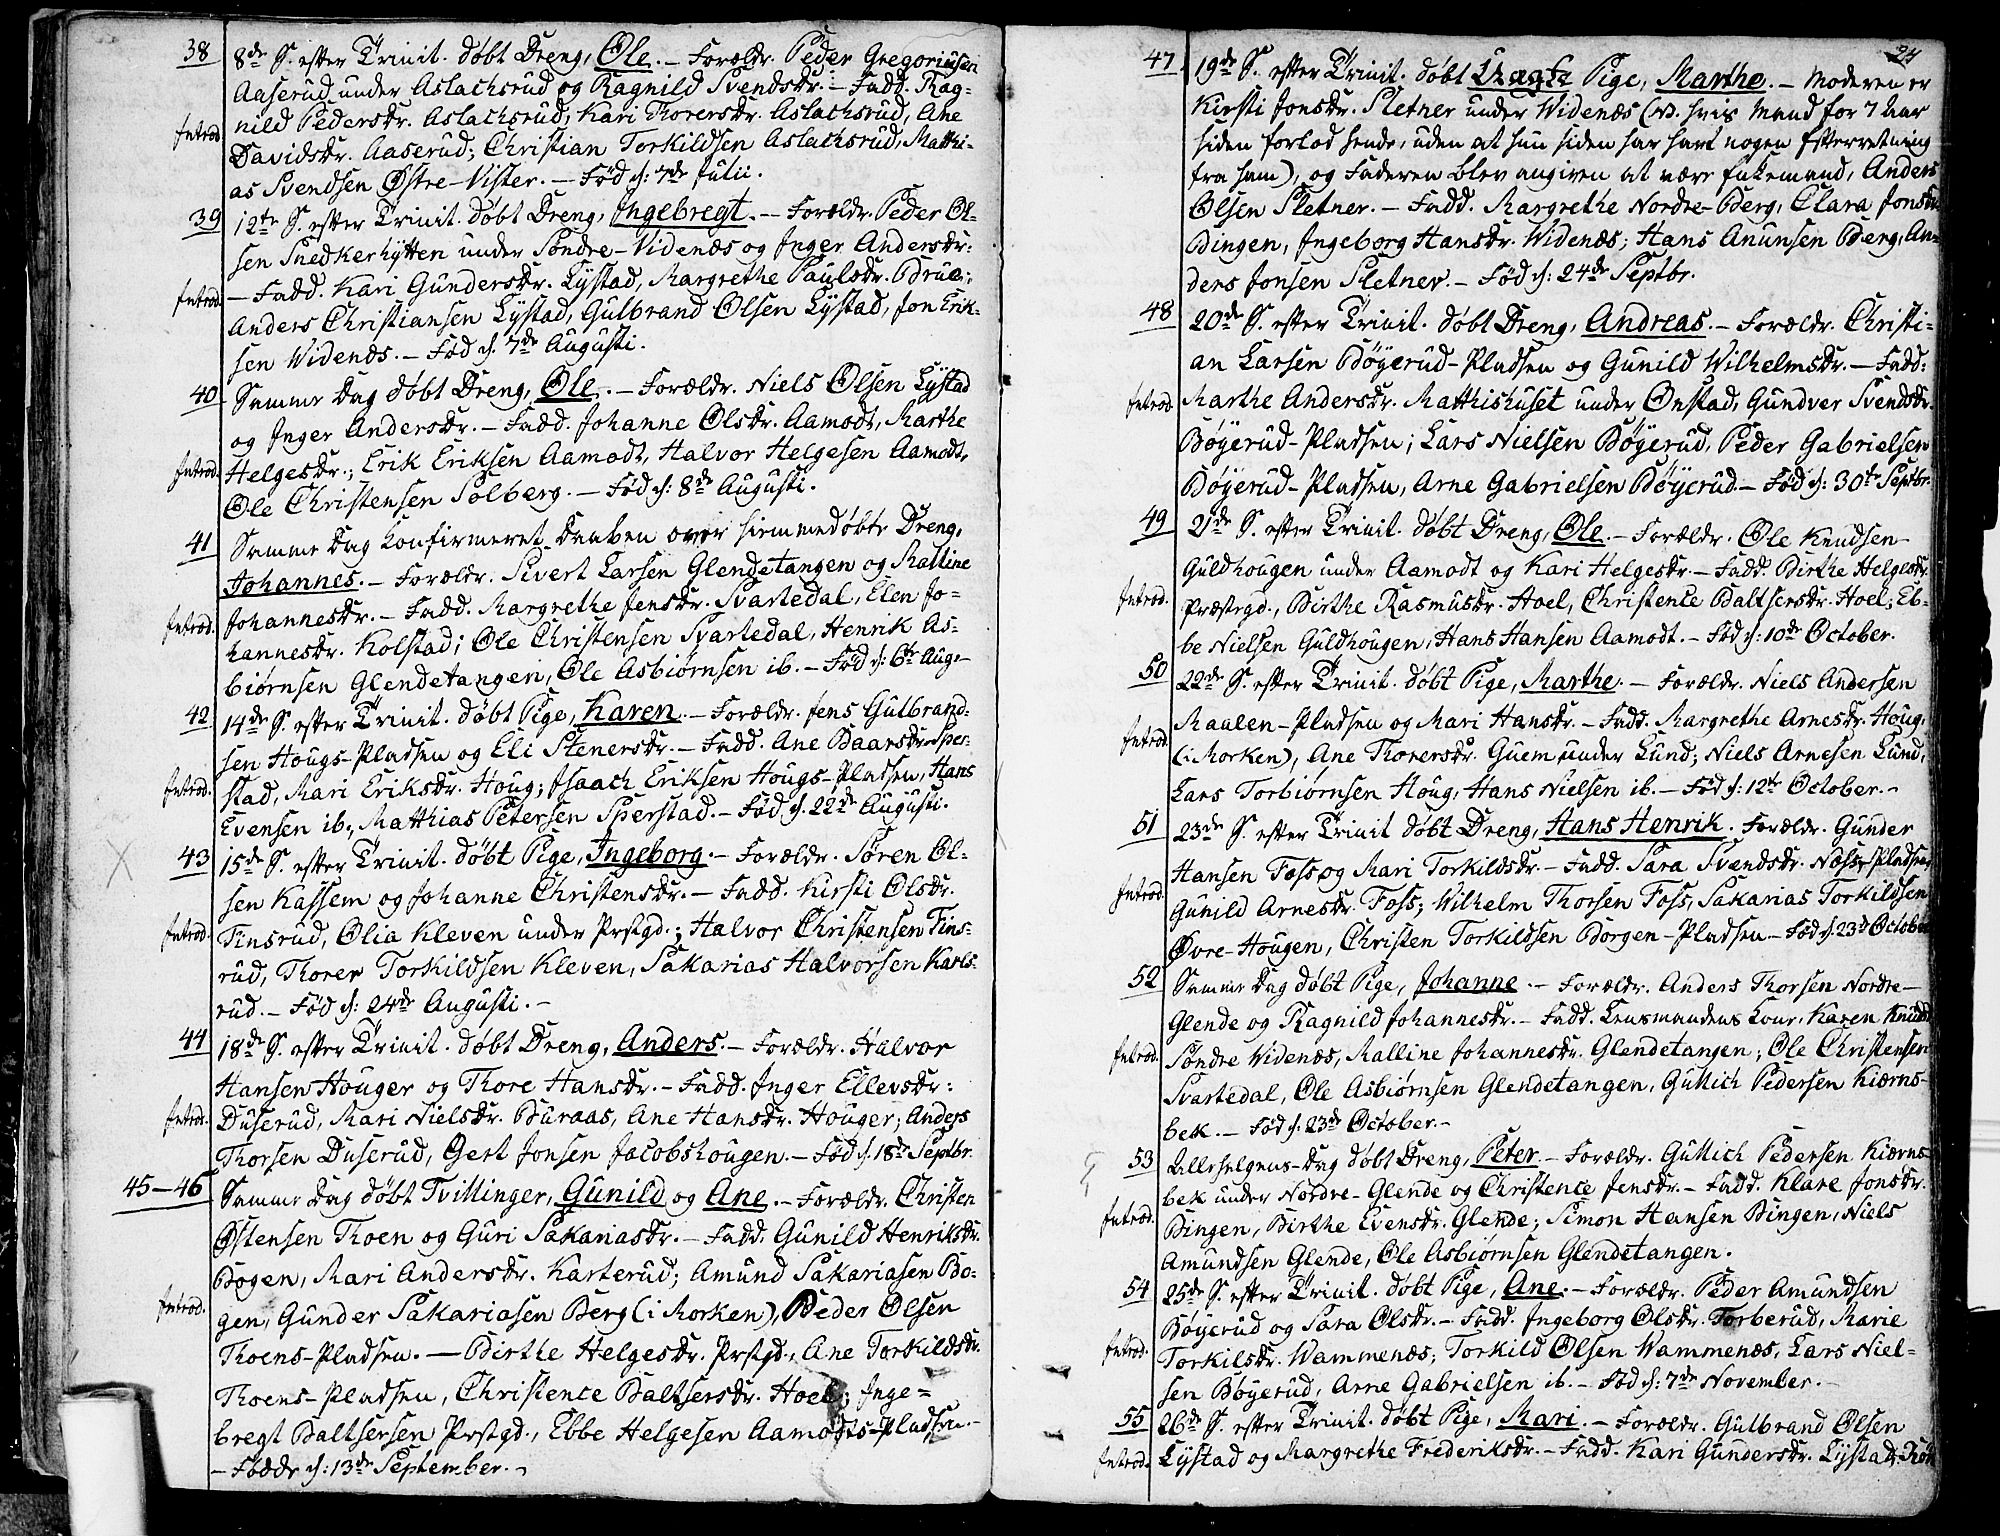 38 8de S. efter Trinit. døbt Dreng, Ole. – Forældr. Peder Gregoriusen
Aaserud under Aslachsrud og Ragnild Svendsdr. – Fadd. Rag-
Introd. nild Pedersdr. Aslachsrud, Kari Thorersdr. Aslachsrud, Ane
Davidsdr. Aaserud; Christian Torkildsen Aslachsrud, Matthi-
as Svendsen Østre-Vister. – Fød d: 7de Julii.
39 12te S. efter Trinit. døbt Dreng, Ingebregt. – Forældr. Peder Ol-
sen Snedkerhytten under Søndre-Videnæs og Inger Andersdr:
Introd. – Fadd. Kari Gundersdr. Lystad, Margrethe Paulsdr. Brue;
Anders Christiansen Lystad, Gulbrand Olsen Lystad, Jon Erik-
sen Widenæs. – Fød d. 7de Augusti.
40 Samme Dag døbt Dreng, Ole. – Forældr. Niels Olsen Lystad
og Inger Andersdr. – Fadd. Johanne Olsdr. Aamodt, Marthe
Introd. Helgesdr.; Erik Eriksen Aamodt, Halvor Helgesen Aamodt,
Ole Christensen Solberg. – Fød d: 8de Augusti.
41 Samme Dag Konfirmeret Daaben over hiemmedøbte Dreng,
Johannes. – Forældr. Sivert Larsen Glendetangen og Malline
Introd. Johannesdr. – Fadd. Margrethe Jensdr. Svartedal, Elen Jo-
hannesdr. Kolstad; Ole Christensen Svartedal, Henrik As-
biørnsen Glendetangen, Ole Asbiørnsen ib. – Fød d: 6te Aug.
42 14de S. efter Trinit. døbt Pige, Karen. – Forældr. Jens Gulbrand-
sen Hougs-Pladsen og Eli Stenersdr. – Fadd. Ane Baarsdr. Sper-
Introd. stad, Mari Eriksdr. Houg; Isaach Eriksen Hougs-Pladsen, Hans
Evensen ib., Matthias Petersen Sperstad. – Fød d. 22de Augusti.
43 15de S. efter Trinit. døbt Pige, Ingeborg. – Forældr. Søren Ol-
sen Kassem og Johanne Christensdr. – Fadd. Kirsti Olsdr.
Introd. Tinsrud, Olia Kleven under Prstgd.; Halvor Christensen Tins-
rud, Thorer Torkildsen Kleven, Sakarias Halvorsen Karls-
rud. – Fød d: 24de Augusti. –
44 18de S. efter Trinit. døbt Dreng, Anders. – Forældr. Halvor
Hansen Houger og Thore Hansdr. – Fadd. Inger Ellevsdr:
Introd. Duserud, Mari Nielsdr. Buraas, Ane Hansdr. Houger; Anders
Thorsen Duserud, Gert Jonsen Jacobshougen. – Fød d. 18de Septbr.
45–46 Samme Dag døbt Tvillinger, Gunild og Ane. – Forældr. Christen
Østensen Thoen og Guri Sakariasdr. – Fadd. Gunild Henriksdr.
Bogen, Mari Andersdr. Karterud; Amund Sakariasen Bo-
Introd. gen, Gunder Sakariasen Berg (i Morken), Peder Olsen
Thoens-Pladsen. – Birthe Helgesdr. Prstgd., Ane Torkildsdr.
Thoens-Pladsen, Christence Baltsersdr. Hoel; Inge=
bregt Baltsersen Prstgd., Ebbe Helgesen Aamodts-Pladsen. –
– Fødde d: 13de September. –
24
47 19de S. efter Trinit. døbt Uægte Pige, Marthe. – Moderen er
Kirsti Jonsdr. Sletner under Widenæs (NB. hvis Mand for 7 Aar
siden forlod hende, uden at hun siden har havt nogen Efterretning
fra ham), og Faderen blev angiven at være Enkemand, Anders
Olsen Sletner. – Fadd. Margrethe Nordre-Berg, Clara Jonsdr.
Bingen, Ingeborg Hansdr. Widenæs; Hans Anunsen Berg, An-
ders Jonsen Sletner. – Fød d: 24de Septbr.
48 20de S. efter Trinit. døbt Dreng, Andreas. – Forældr. Christi-
an Larsen Bøyerud-Pladsen og Gunild Wilhelmsdr. – Fadd:
Introd. Marthe Andersdr. Matthishuset under Onstad, Gundver Svendsdr.
Bøyerud-Pladsen; Lars Nielsen Bøyerud, Peder Gabrielsen
Bøyerud-Pladsen, Arne Gabrielsen Bøyerud. – Fød d: 30te Septbr.
49 21de S. efter Trinit. døbt Dreng, Ole. – Forældr. Ole Knudsen
Guldhougen under Aamodt og Kari Helgesdr. – Fadd. Birthe Helgesdr.
Introd. Præstgd., Birthe Rasmusdr. Hoel, Christence Baltsersdr. Hoel; Eb-
be Nielsen Guldhougen, Hans Hansen Aamodt. – Fød d: 10de October.
50 22de S. efter Trinit. døbt Pige, Marthe. – Forældr. Niels Andersen
Maulen-Pladsen og Mari Hansdr. – Fadd. Margrethe Arnesdr. Houg,
Introd. (i Morken), Ane Thorersdr. Guem under Lund; Niels Arnesen Lund,
Lars Torbiørnsen Houg, Hans Nielsen ib. – Fød d: 12te October. –
51 23de S. efter Trinit døbt Dreng, Hans Henrik. Forældr. Gunder
Hansen Foss og Mari Torkildsdr. – Fadd. Sara Svendsdr. Næss-Pladsen,
Introd. Gunild Arnesdr. Foss; Wilhelm Thorsen Foss, Sakarias Torkildsen
Øvre-Hougen, Christen Torkildsen Borgen-Pladsen – Fød d. 23de October
52 Samme Dag døbt Pige, Johanne. – Forældr. Anders Thorsen Nordre-
Glende og Ragnild Johannesdr. – Fadd. Lensmandens Kone, Karen Knudsdr
Introd. Søndre Widenæs, Malline Johannesdr. Glendetangen; Ole Christensen
Svartedal, Ole Asbiørnsen Glendetangen, Gullich Pedersen Kiærns-
bek. – Fød d: 23de October. –
53 Allehelgens-Dag døbt Dreng, Peter. – Forældr. Gullich Pedersen Kiærns-
bek under Nordre-Glende og Christence Jensdr. – Fadd. Klare Jonsdr.
Introd. Bingen, Birthe Evensdr. Glende; Simon Hansen Bingen, Niels
Amundsen Glende, Ole Asbiørnsen Glendetangen.
54 25de S. efter Trinit. døbt Pige, Ane. – Forældr. Peder Amundsen
Bøyerud og Sara Olsdr. – Fadd. Ingeborg Olsdr. Torberud, Marie
Introd. Torkilsdr. Wammenæs; Torkild Olsen Wammenæs, Lars Niel-
sen Bøyerud, Arne Gabrielsen ib. – Fød d: 7de November. –
55 26de S. efter Trinit. døbt Pige, Mari. – Forældr. Gulbrand Olsen
Introd. Lystad og Margrethe Frederiksdr. – Fadd. Kari Gundersdr. Lystad,